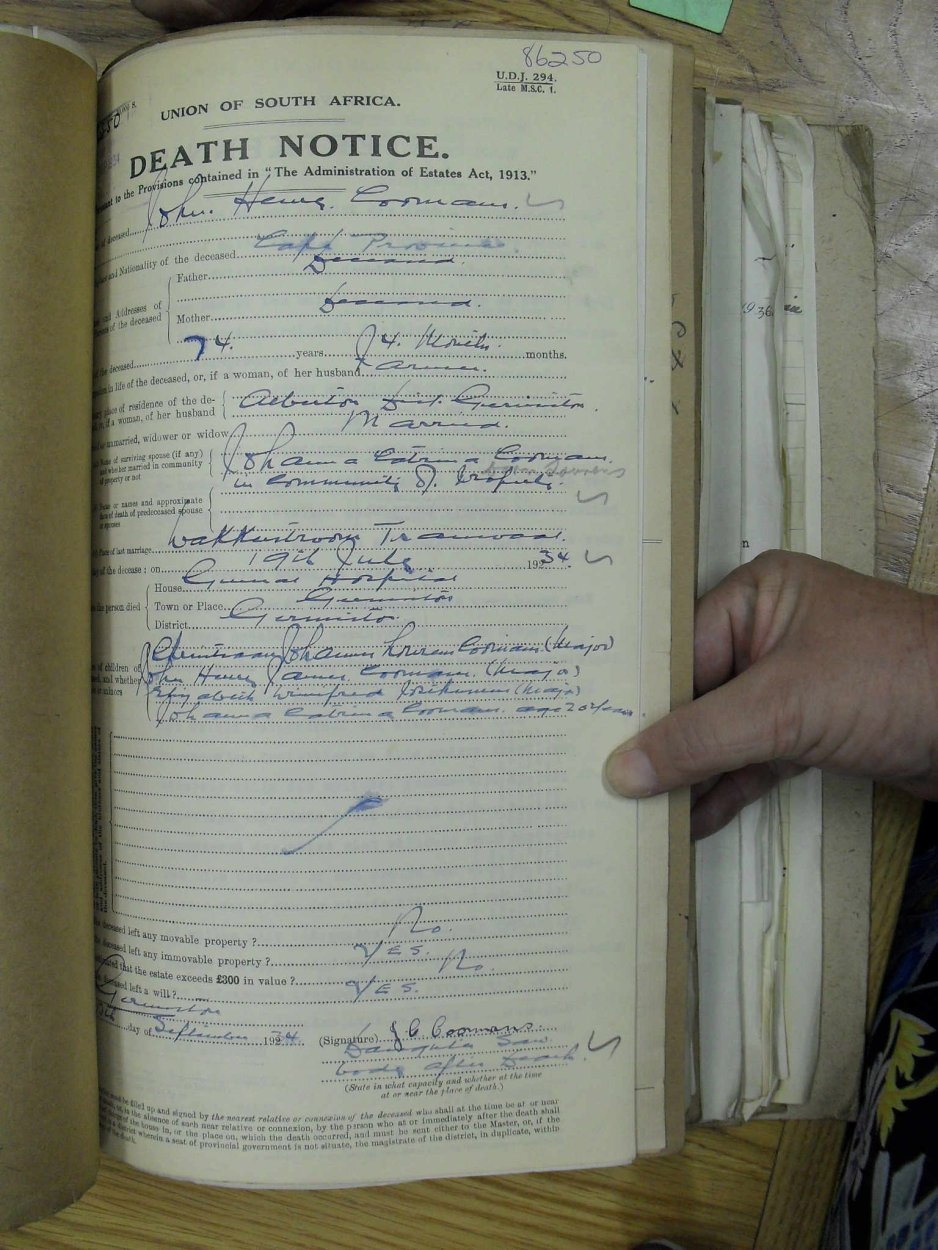 86250
U.D.J. 294.
Late M.S.C. 1.
UNION OF SOUTH AFRICA.
DEATH NOTICE.
to the Provisions contained in "The Administration of Estates Act, 1913."
of deceased John Henry Coomans.
and Nationality of the deceased Cape Province.
Father Deceased.
and Addresses of
of the deceased
Mother Deceased.
of the deceased 74. years 4. Months months.
in life of the deceased, or, if a woman, of her husband Farmer.
place of residence of the de-
if a woman, of her husband
Alberton Dist. Germiston.
unmarried, widower or widow Married.
Name of surviving spouse (if any)
and whether married in community
of property or not
Johanna Catrina Coomans.
in Community of Property.
or names and approximate
of death of predeceased spouse
or spouses
Place of last marriage Wakkerstroom Transvaal.
of the decease: on 19th July 1934.
the person died
House General Hospital
Town or Place Germiston
District Germiston.
of children of
and whether
or minors
Johannes Coomans (Major)
John Henry James Coomans. (Major)
Elizabeth Winifred (Major)
Johanna Catrina Coomans. age 20 years.
deceased left any movable property? No.
deceased left any immovable property? YES.
that the estate exceeds £300 in value? No.
left a will? YES.
Germiston
day of September 1934.
(Signature) J C Coomans.
Daughter Saw
body after Death.
(State in what capacity and whether at the time
at or near the place of death.)
must be filled up and signed by the nearest relative or connexion of the deceased who shall at the time be at or near
in the absence of such near relative or connexion, by the person who at or immediately after the death shall
of the house in, or the place on, which the death occurred, and must be sent either to the Master, or, if the
district wherein a seat of provincial government is not situate, the magistrate of the district, in duplicate, within
the death.
1936